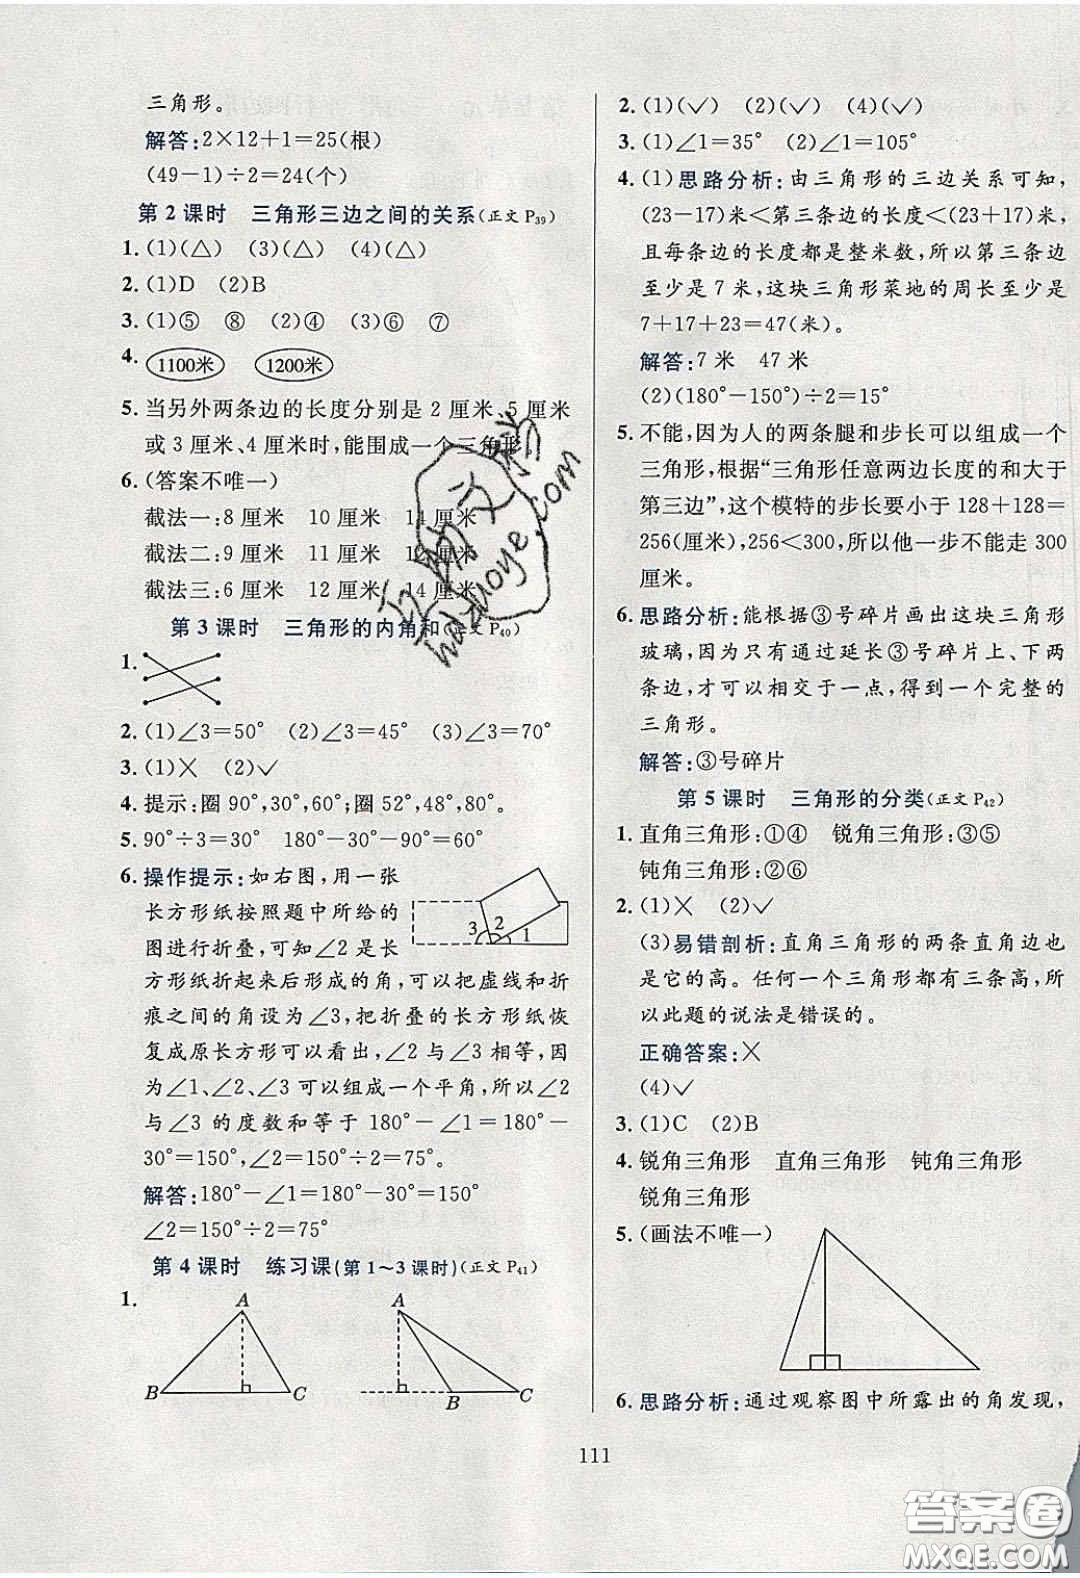 三角形。
解答:2×12+1=25(根)
(49-1)÷2=24(个)
第2课时 三角形三边之间的关系(正文P39)
1. (1)(△) (3)(△) (4)(△)
2. (1)D (2)B
3. (1)⑤ ⑧ (2)④ (3)⑥ ⑦
4. 1100米 1200米
5. 当另外两条边的长度分别是2厘米、5厘米
或3厘米、4厘米时,能围成一个三角形
6. (答案不唯一)
截法一:8厘米 10厘米 14厘米
截法二:9厘米 11厘米 12厘米
截法三:6厘米 12厘米 14厘米
第3课时 三角形的内角和(正文P40)
1.
2. (1)∠3=50° (2)∠3=45° (3)∠3=70°
3. (1)× (2)✓
4. 提示:圈90°,30°,60°;圈52°,48°,80°。
5. 90°÷3=30° 180°-30°-90°=60°
6. 操作提示:如右图,用一张
长方形纸按照题中所给的
图进行折叠,可知∠2是长
方形纸折起来后形成的角,可以把虚线和折
痕之间的角设为∠3,把折叠的长方形纸恢
复成原长方形可以看出,∠2与∠3相等,因
为∠1、∠2、∠3可以组成一个平角,所以∠2
与∠3的度数和等于180°-∠1=180°-
30°=150°,∠2=150°÷2=75°。
解答:180°-∠1=180°-30°=150°
∠2=150°÷2=75°
3 2 1
第4课时 练习课(第1~3课时)(正文P41)
1.
A A
B C B C
2. (1)(✓) (2)(✓) (4)(✓)
3. (1)∠1=35° (2)∠1=45°
4. (1)思路分析:由三角形的三边关系可知,
(23-17)米<第三条边的长度<(23+17)米,
且每条边的长度都是整米数,所以第三条边
至少是7米,这块三角形菜地的周长至少是
7+17+23=47(米)。
解答:7米 47米
(2)(180°-150°)÷2=15°
5. 不能,因为人的两条腿和步长可以组成一个
三角形,根据“三角形任意两边长度的和大于
第三边”,这个模特的步长要小于128+128=
256(厘米),256<300,所以他一步不能走300
厘米。
6. 思路分析:能根据③号碎片画出这块三角形
玻璃,因为只有通过延长③号碎片上、下两
条边,才可以相交于一点,得到一个完整的
三角形。
解答:③号碎片
第5课时 三角形的分类(正文P42)
1. 直角三角形:①④ 锐角三角形:③⑤
钝角三角形:②⑥
2. (1)× (2)✓
(3)易错剖析:直角三角形的两条直角边也
是它的高。任何一个三角形都有三条高,所
以此题的说法是错误的。
正确答案:×
(4)✓
3. (1)C (2)B
4. 锐角三角形 直角三角形 钝角三角形
锐角三角形
5. (画法不唯一)
6. 思路分析:通过观察图中所露出的角发现,
111
hdzuoye.com
答案卷
MXQE.COM